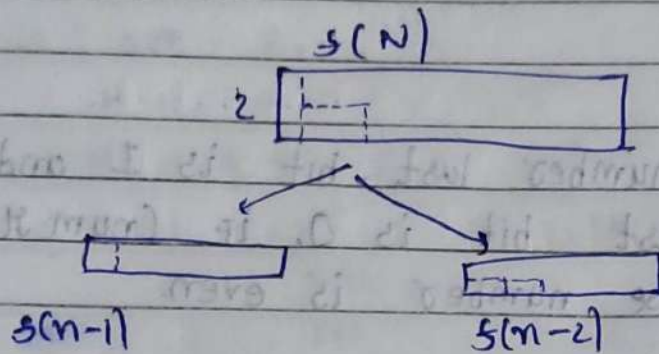 f(N)
2
f(n-1)
f(n-2)